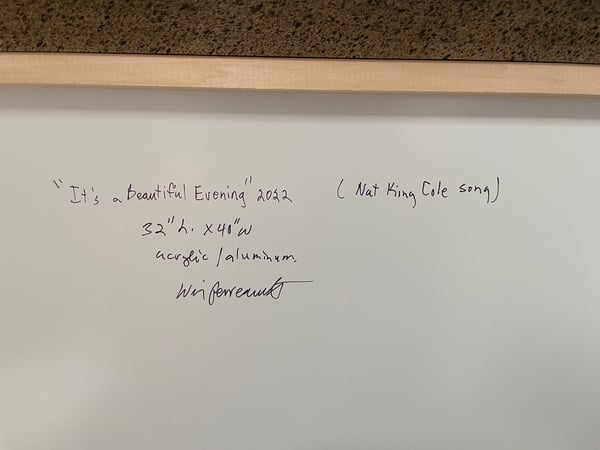 "It's a Beautiful Evening" 2022 (Nat King Cole song)
32" h. x 40" w
acrylic / aluminum.